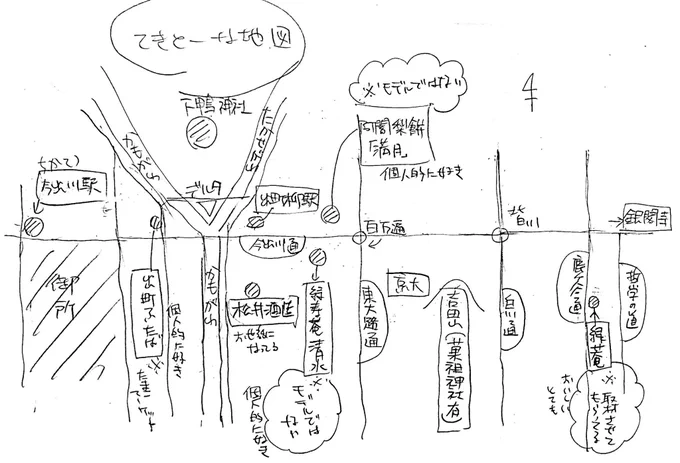 てきとーな地図
下鴨神社
かもがわ
たかせがわ
※モデルではない
阿闍梨餅
満月
個人的に好き
(ちかてつ)
今出川駅
デルタ
出町柳駅
百万遍
白川
→銀閣寺
今出川通
御所
出町ふたば
個人的に好き
かもがわ
松井酒造
お世話に
なってる
緑寿庵清水
※
モデルでは
ない
個人的に好き
東大路通
京大
吉田山(菓祖神社有)
白川通
鹿ケ谷通
哲学の道
緑菴
※
取材させて
もらってる
とても
おいしい